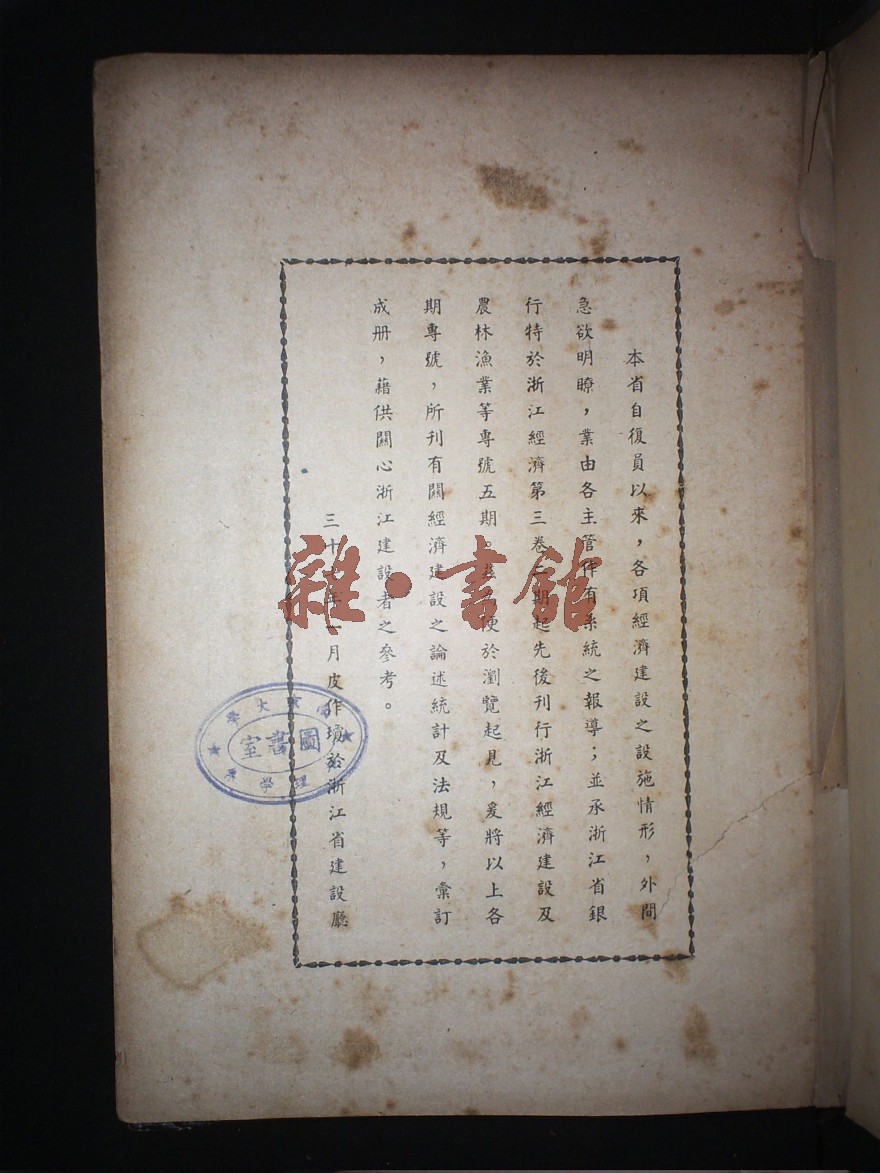 本省自復員以來，各項經濟建設之設施情形，外間
急欲明瞭，業由各主管作有系統之報導；並承浙江省銀
行特於浙江經濟第三卷二期起先後刊行浙江經濟建設及
農林漁業等專號五期。茲　便於瀏覽起見，爰將以上各
期專號，所刊有關經濟建設之論述統計及法規等，彙訂
成册，藉供關心浙江建設者之參考。
三十　年一月皮作瓊於浙江省建設廳
雜·書館
大學
圖書室
理學